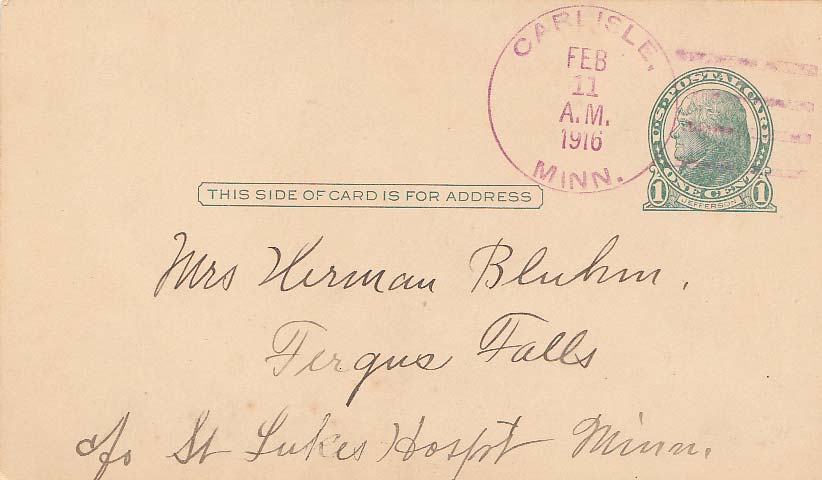 CARLISLE,
FEB
11
A.M.
1916
MINN.
U.S. POSTAL CARD
ONE CENT
1 1
JEFFERSON
THIS SIDE OF CARD IS FOR ADDRESS
Mrs Herman Bluhm.
Fergus Falls
c/o St Lukes Hospt Minn.